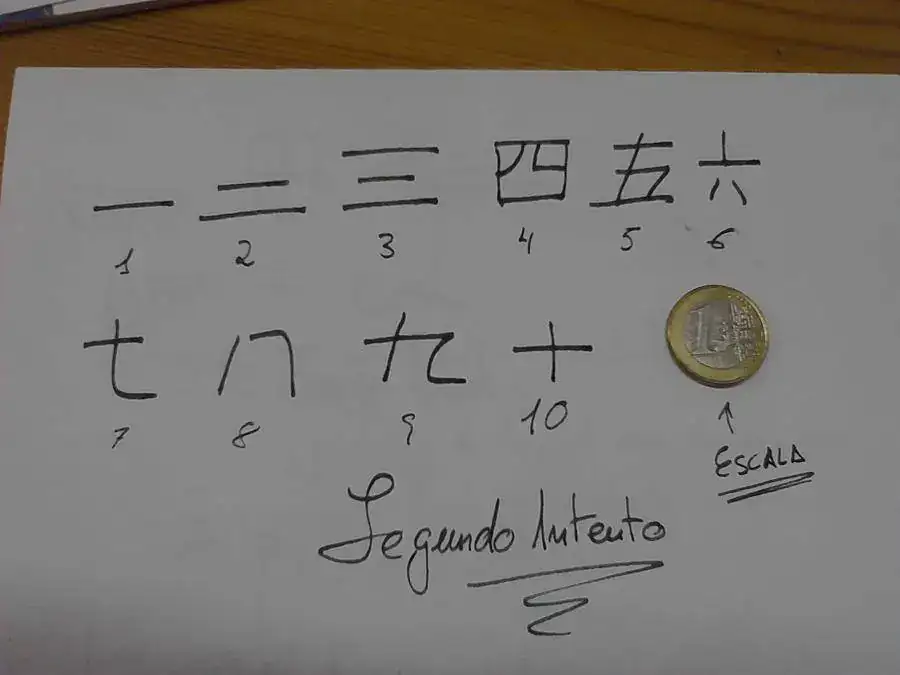 一 二 三 四 五 六
1 2 3 4 5 6
七 八 九 十
7 8 9 10
1
↑
ESCALA
Segundo Intento